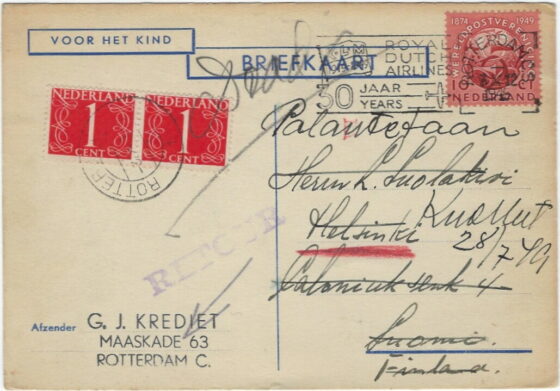 VOOR HET KIND
BRIEFKAART
1874 1949
WERELDPOSTVEREENIGING
10 CT
NEDERLAND
ROYAL
DUTCH
AIRLINES
30 JAAR
YEARS
ROTTERDAM
NEDERLAND
1
CENT
NEDERLAND
1
CENT
ROTTER
Palautetaan
Herrn
Helsinki
28/7 49
RETOUR
4
Suomi
Finland.
Afzender
G. J. KREDIET
MAASKADE 63
ROTTERDAM C.